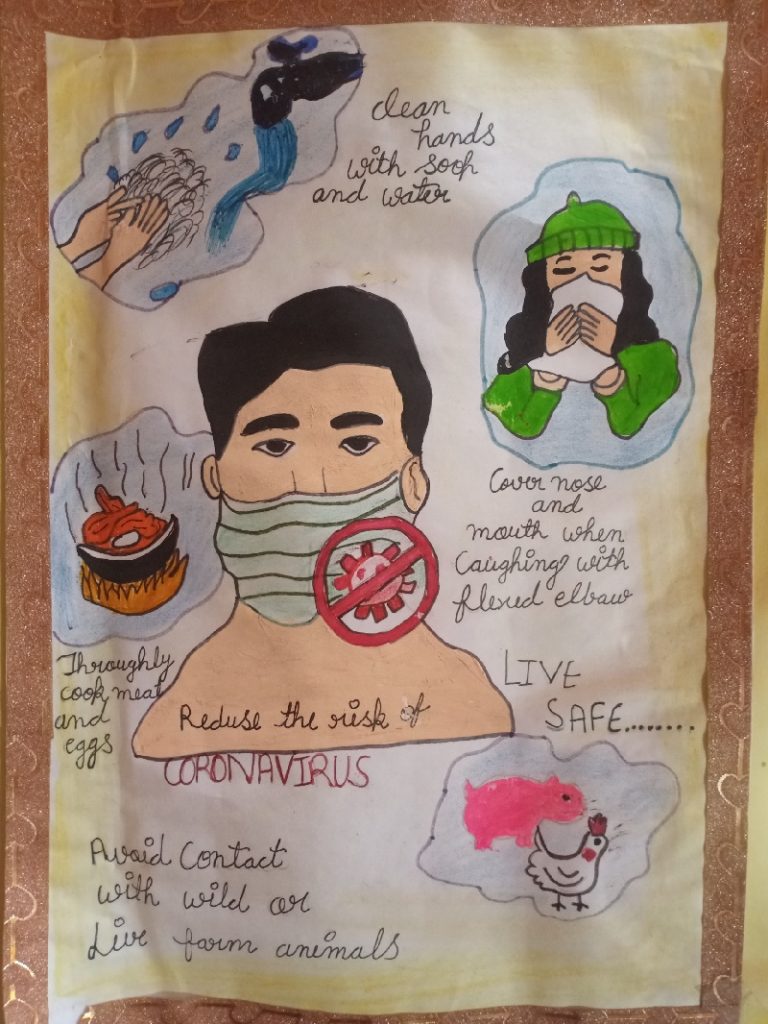 clean
hands
with sooh
and water
Cover nose
and
mouth when
Caughing with
flexud elbaw
Throughly
cook meat
and
eggs
LIVE
SAFE........
Reduse the risk of
CORONAVIRUS
Avoid Contact
with wild or
Live farm animals